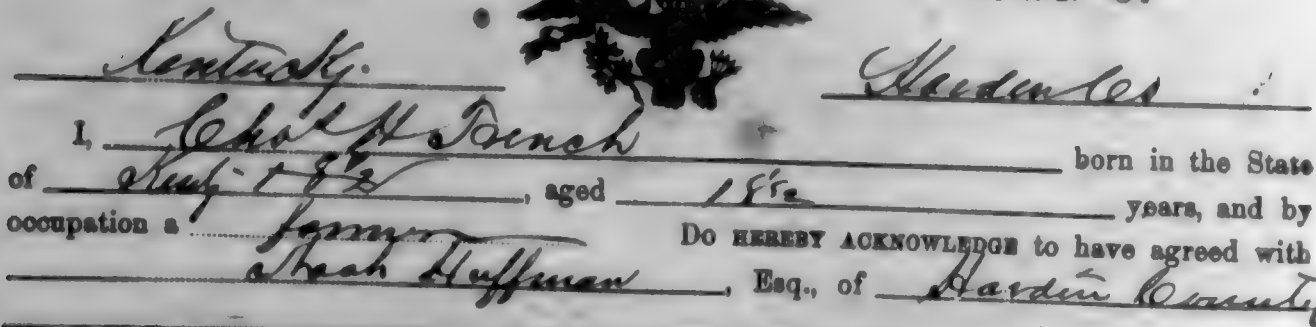 Kentucky. Hardin Co
I, Chas H French born in the State
of Kenty , aged 18 years, and by
occupation a farmer Do HEREBY ACKNOWLEDGE to have agreed with
Huffman , Esq., of Hardin County